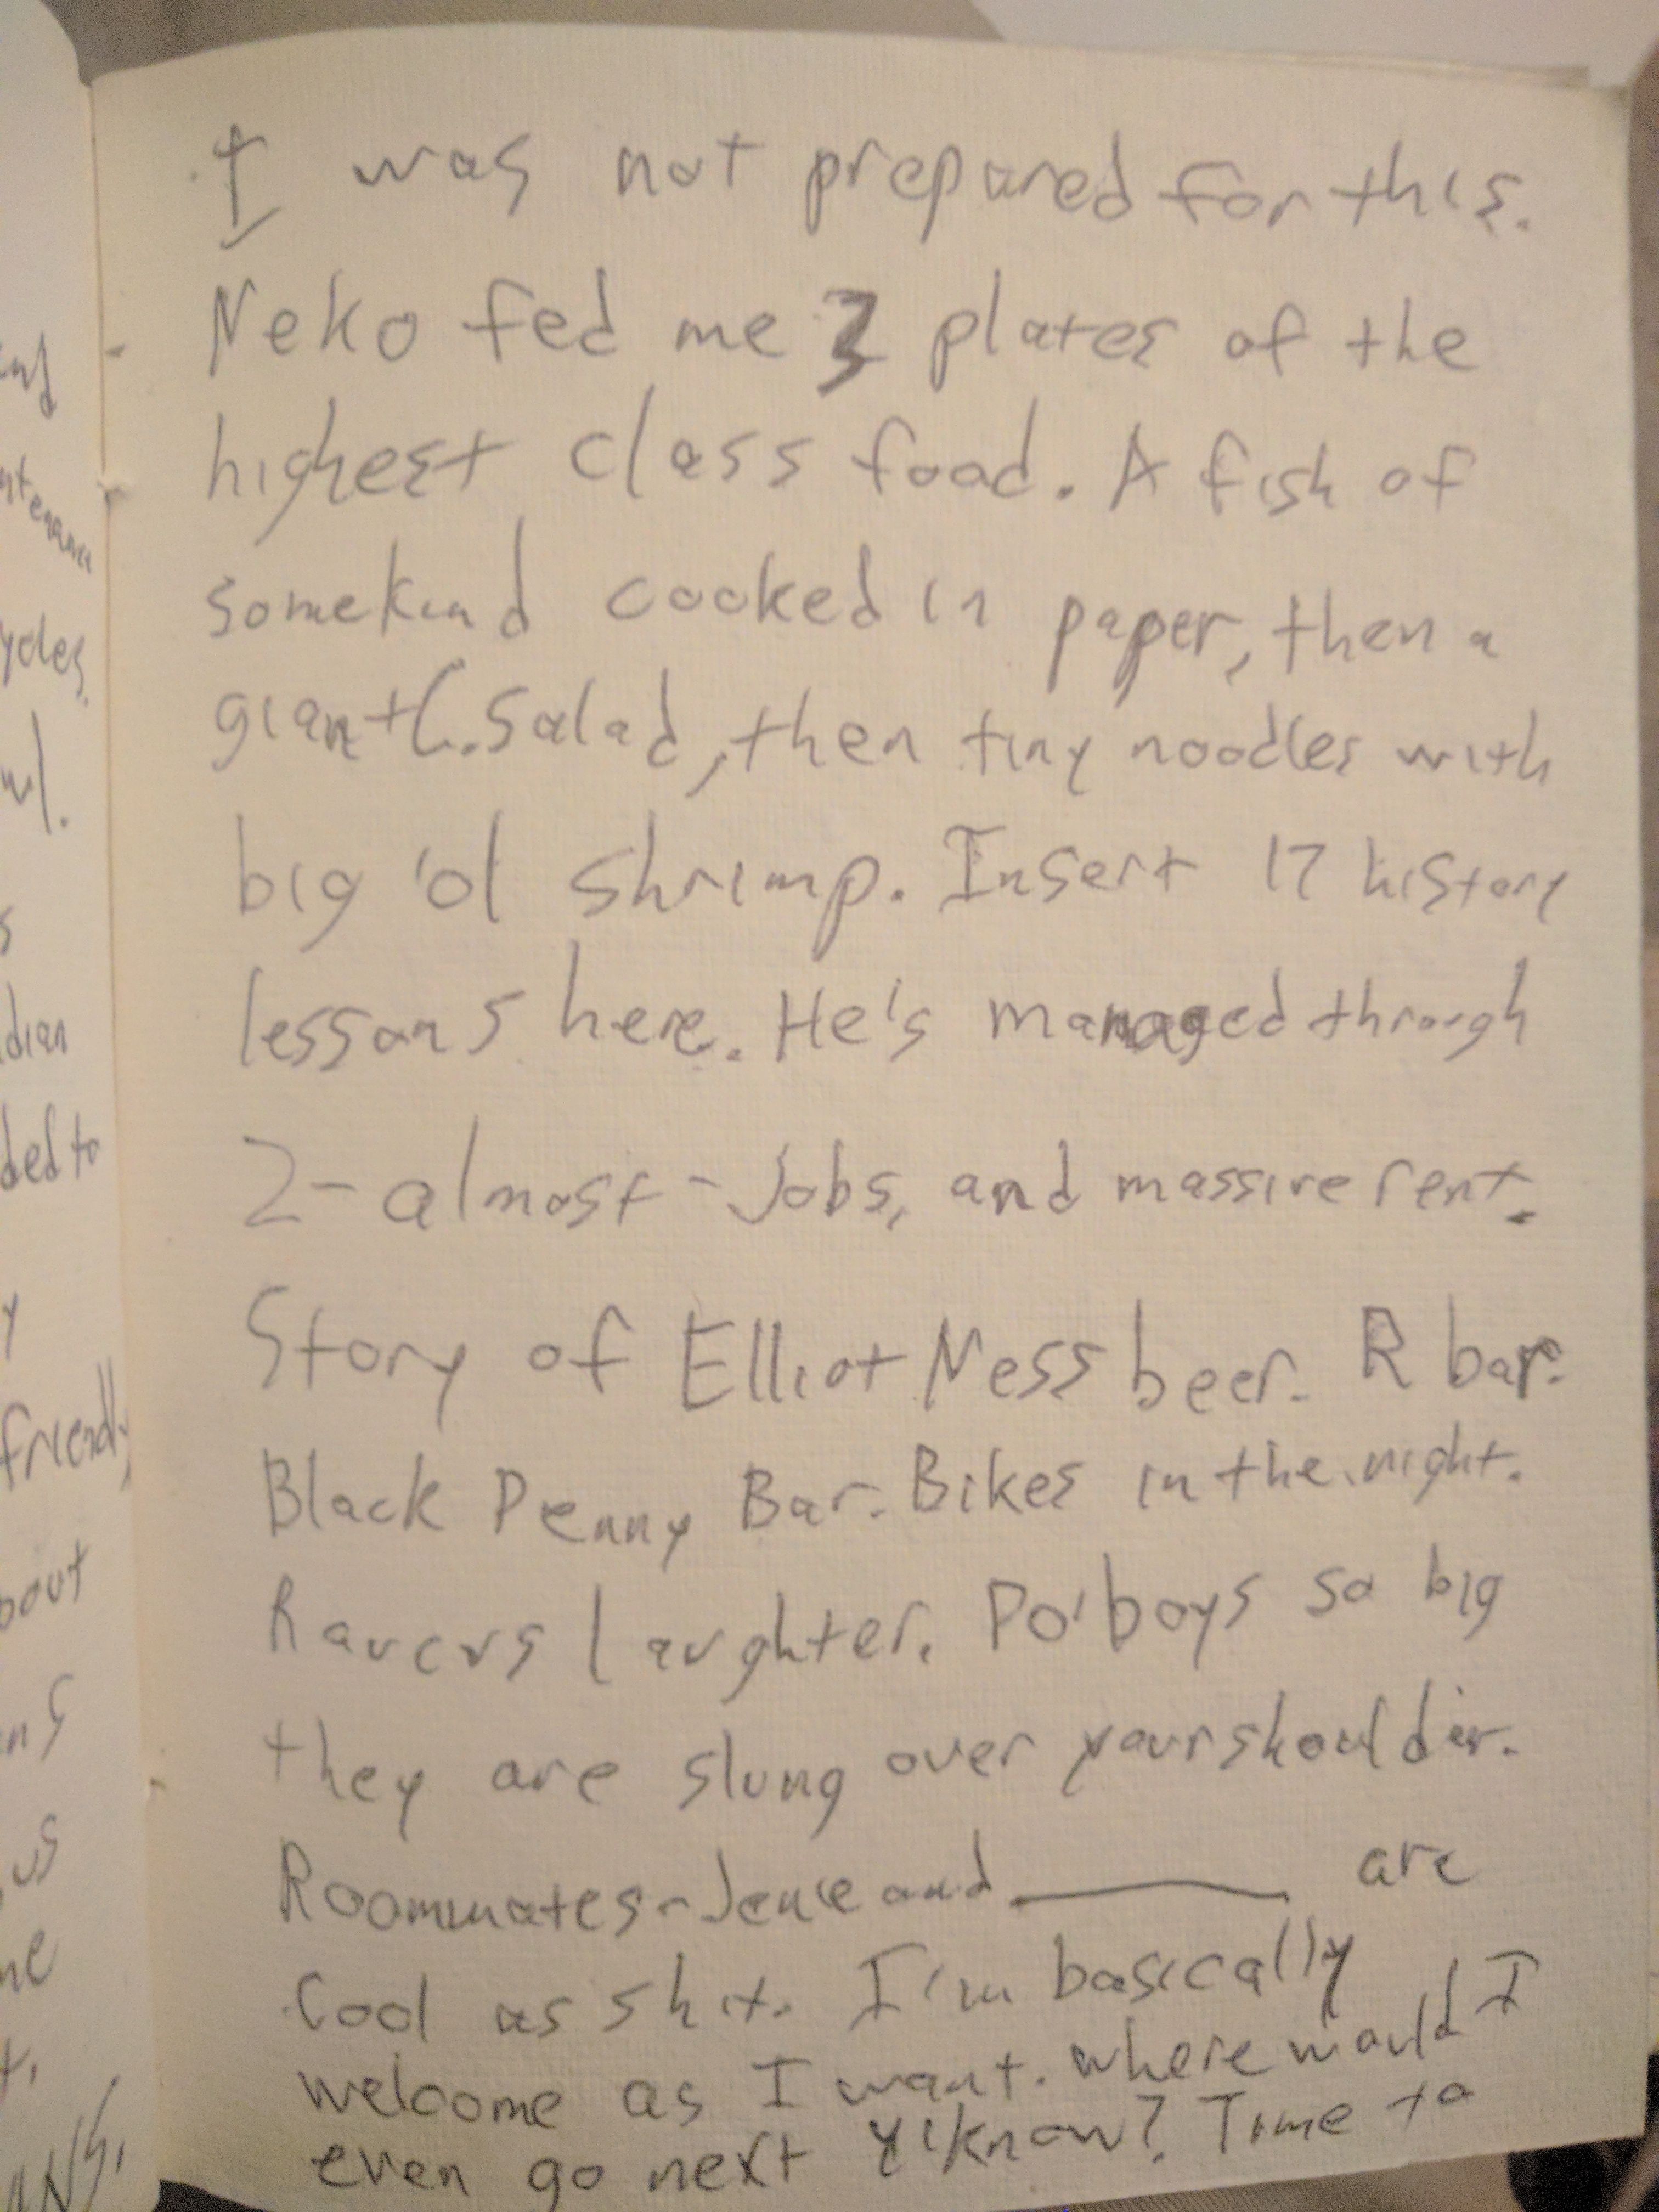 I was not prepared for this.
Neko fed me 3 plates of the
highest class food. A fish of
somekind cooked in paper, then a
giant C. Salad, then tiny noodles with
big 'ol shrimp. Insert 17 history
lessons here. He's managed through
2-almost-jobs, and massive rent.
Story of Elliot Ness beer. R bar.
Black Penny Bar. Bikes in the night.
Ravers laughter. Po'boys so big
they are slung over your shoulder.
Roommates- and ______ are
Cool as shit. I'm basically
welcome as I want. where would I
even go next y'know? Time to
ded to
friendly